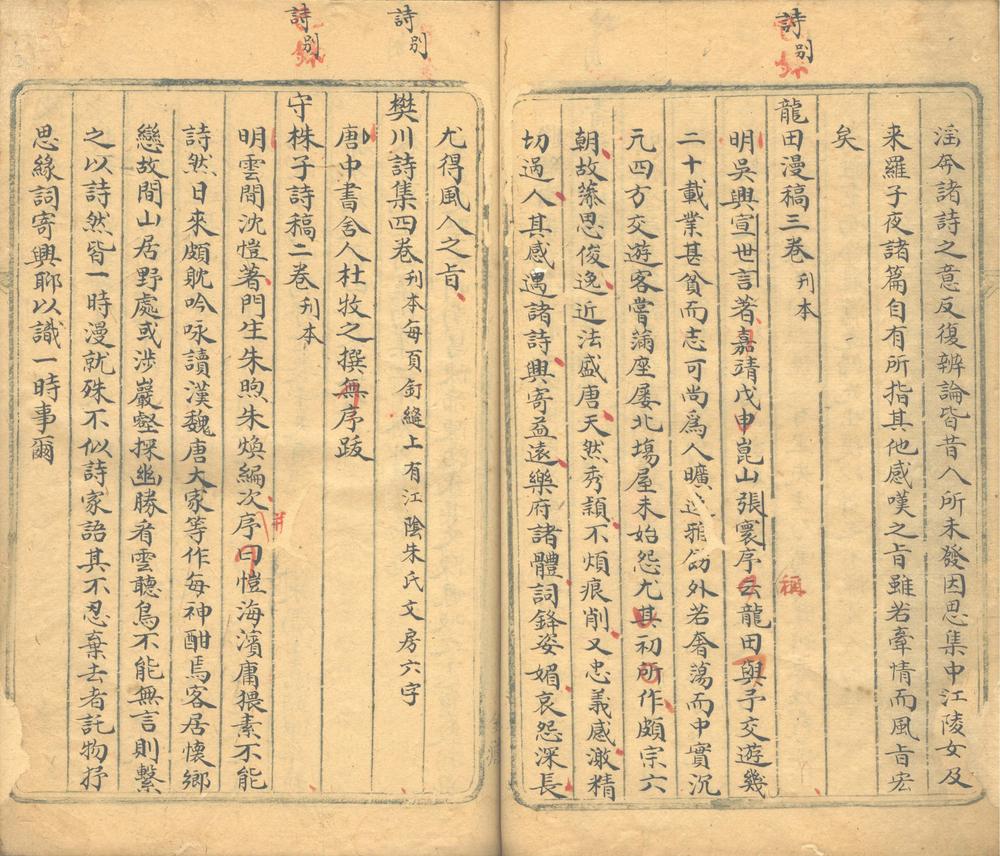 淫奔諸詩之意反復辨論皆昔人所未發因思集中江陵女及
来羅子夜諸篇自有所指其他感嘆之旨雖若牽情而風旨宏
矣
詩别
龍田漫稿三巻 刊本
明吳興宣世言著嘉靖戊申崑山張寰序云龍田與予交遊幾
稱
二十載業甚貧而志可尚爲人曠 雅 外若奢蕩而中實沉
元四方交遊客嘗滿座屡北塲屋未始怨尤其初所作頗宗六
朝故藻思俊逸近法盛唐天然秀頴不煩痕削又忠義感激精
切過人其感遇諸詩興寄益遠樂府諸體詞鋒姿媚哀怨深長
尤得風人之旨
詩别
樊川詩集四巻 刊本每頁 縫上有江陰朱氏文房六字
唐中書舍人杜牧之撰無序跋
詩别
守株子詩稿二巻 刊本
明雲間沈愷著門生朱煦朱煥編次序曰愷海濱庸猥素不能
并
詩然日来頗躭吟咏讀漢魏唐大家等作每神酣焉客居懷鄉
戀故間山居野處或涉巖壑探幽勝看雲聽鳥不能無言則繫
之以詩然皆一時漫就殊不似詩家語其不忍棄去者託物抒
思緣詞寄興聊以識一時事爾